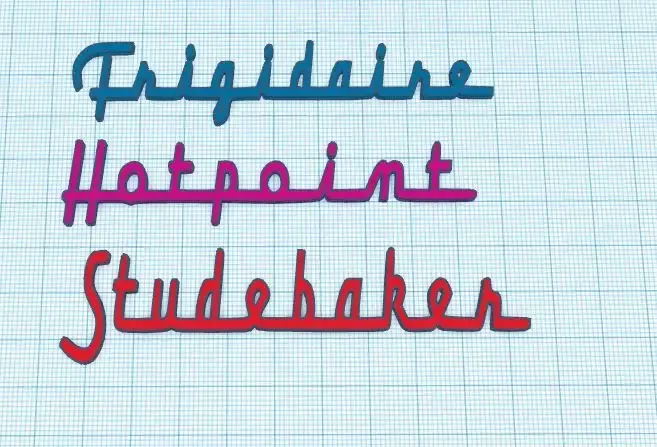 Frigidaire
Hotpoint
Studebaker